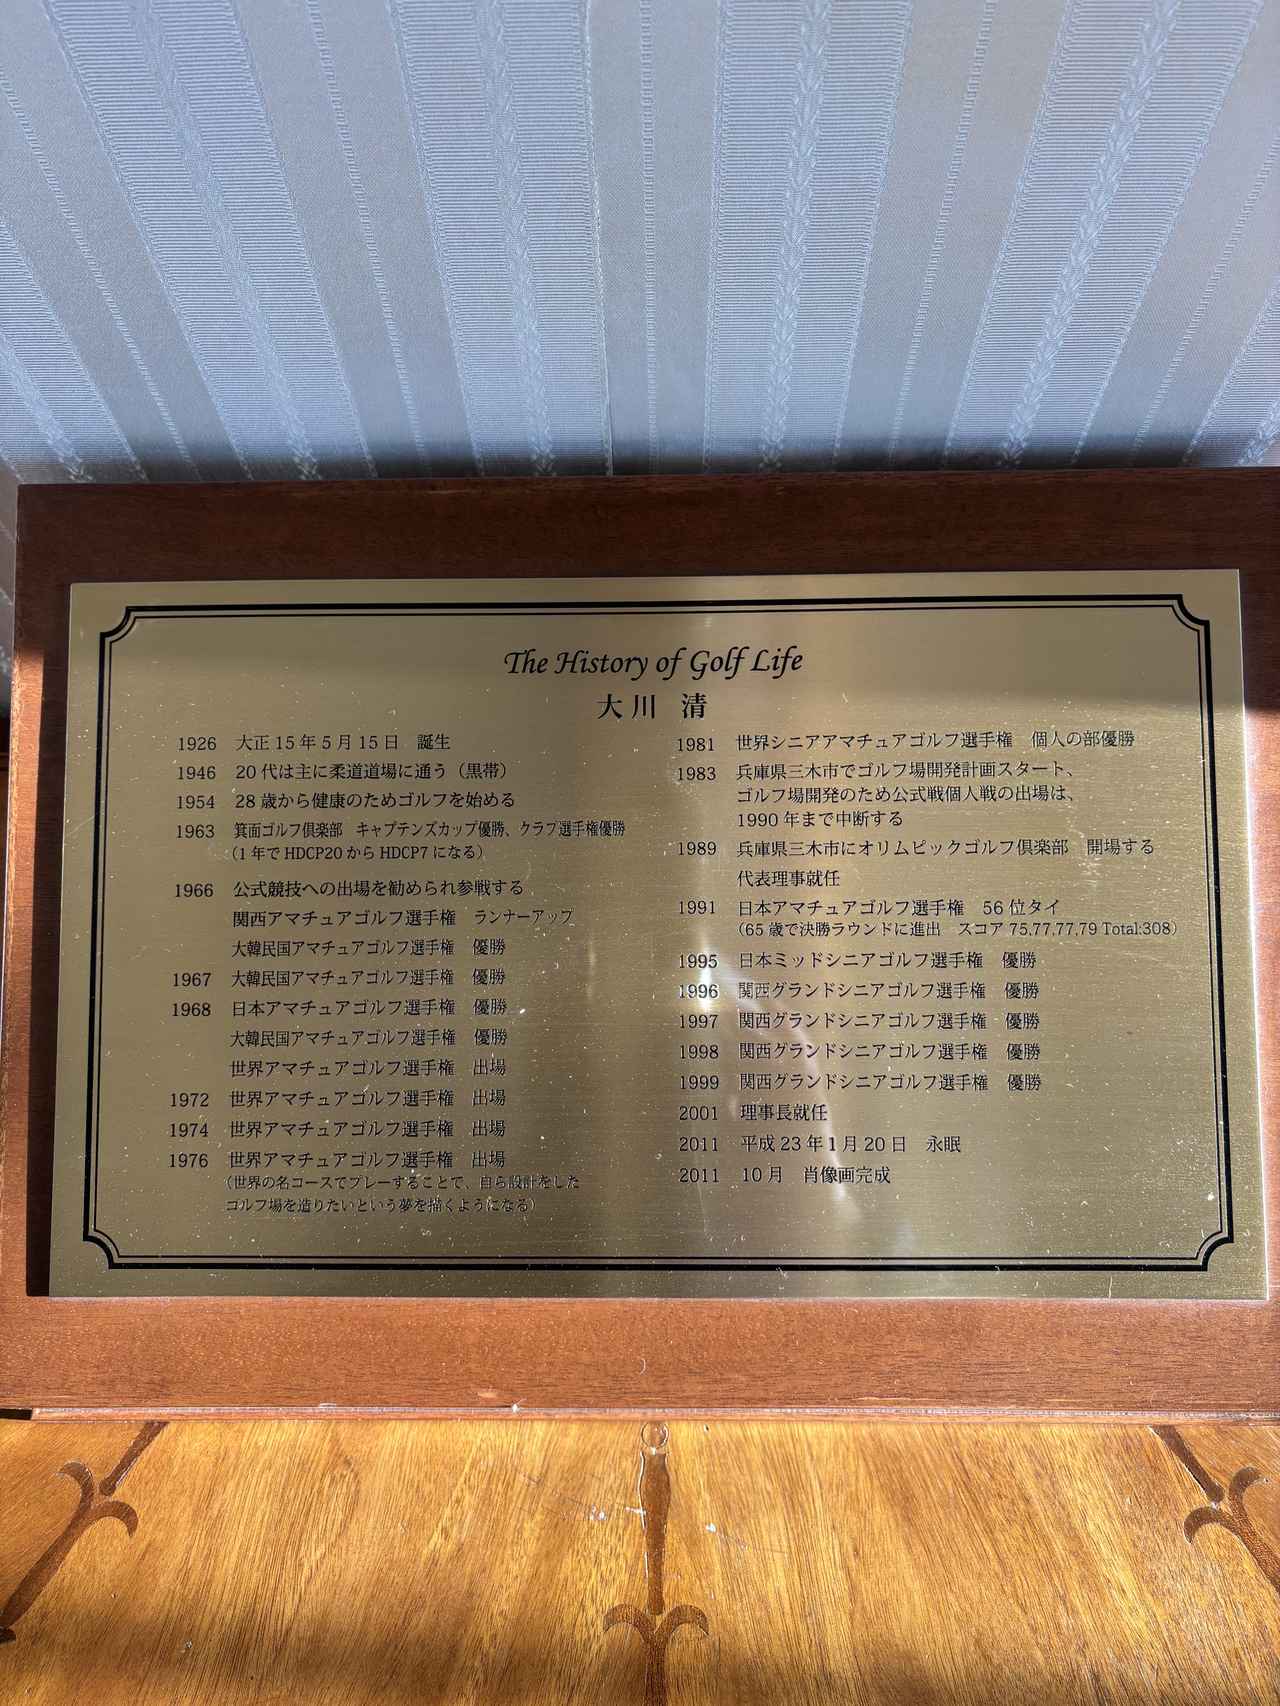 The History of Golf Life
大川 清
1926 大正15年5月15日 誕生
1946 20代は主に柔道道場に通う（黒帯）
1954 28歳から健康のためゴルフを始める
1963 箕面ゴルフ倶楽部 キャプテンズカップ優勝、クラブ選手権優勝
（1年でHDCP20からHDCP7になる）
1966 公式競技への出場を勧められ参戦する
関西アマチュアゴルフ選手権 ランナーアップ
大韓民国アマチュアゴルフ選手権 優勝
1967 大韓民国アマチュアゴルフ選手権 優勝
1968 日本アマチュアゴルフ選手権 優勝
大韓民国アマチュアゴルフ選手権 優勝
世界アマチュアゴルフ選手権 出場
1972 世界アマチュアゴルフ選手権 出場
1974 世界アマチュアゴルフ選手権 出場
1976 世界アマチュアゴルフ選手権 出場
（世界の名コースでプレーすることで、自ら設計をした
ゴルフ場を造りたいという夢を描くようになる）
1981 世界シニアアマチュアゴルフ選手権 個人の部優勝
1983 兵庫県三木市でゴルフ場開発計画スタート、
ゴルフ場開発のため公式戦個人戦の出場は、
1990年まで中断する
1989 兵庫県三木市にオリムピックゴルフ倶楽部 開場する
代表理事就任
1991 日本アマチュアゴルフ選手権 56位タイ
（65歳で決勝ラウンドに進出 スコア75,77,77,79 Total:308）
1995 日本ミッドシニアゴルフ選手権 優勝
1996 関西グランドシニアゴルフ選手権 優勝
1997 関西グランドシニアゴルフ選手権 優勝
1998 関西グランドシニアゴルフ選手権 優勝
1999 関西グランドシニアゴルフ選手権 優勝
2001 理事長就任
2011 平成23年1月20日 永眠
2011 10月 肖像画完成